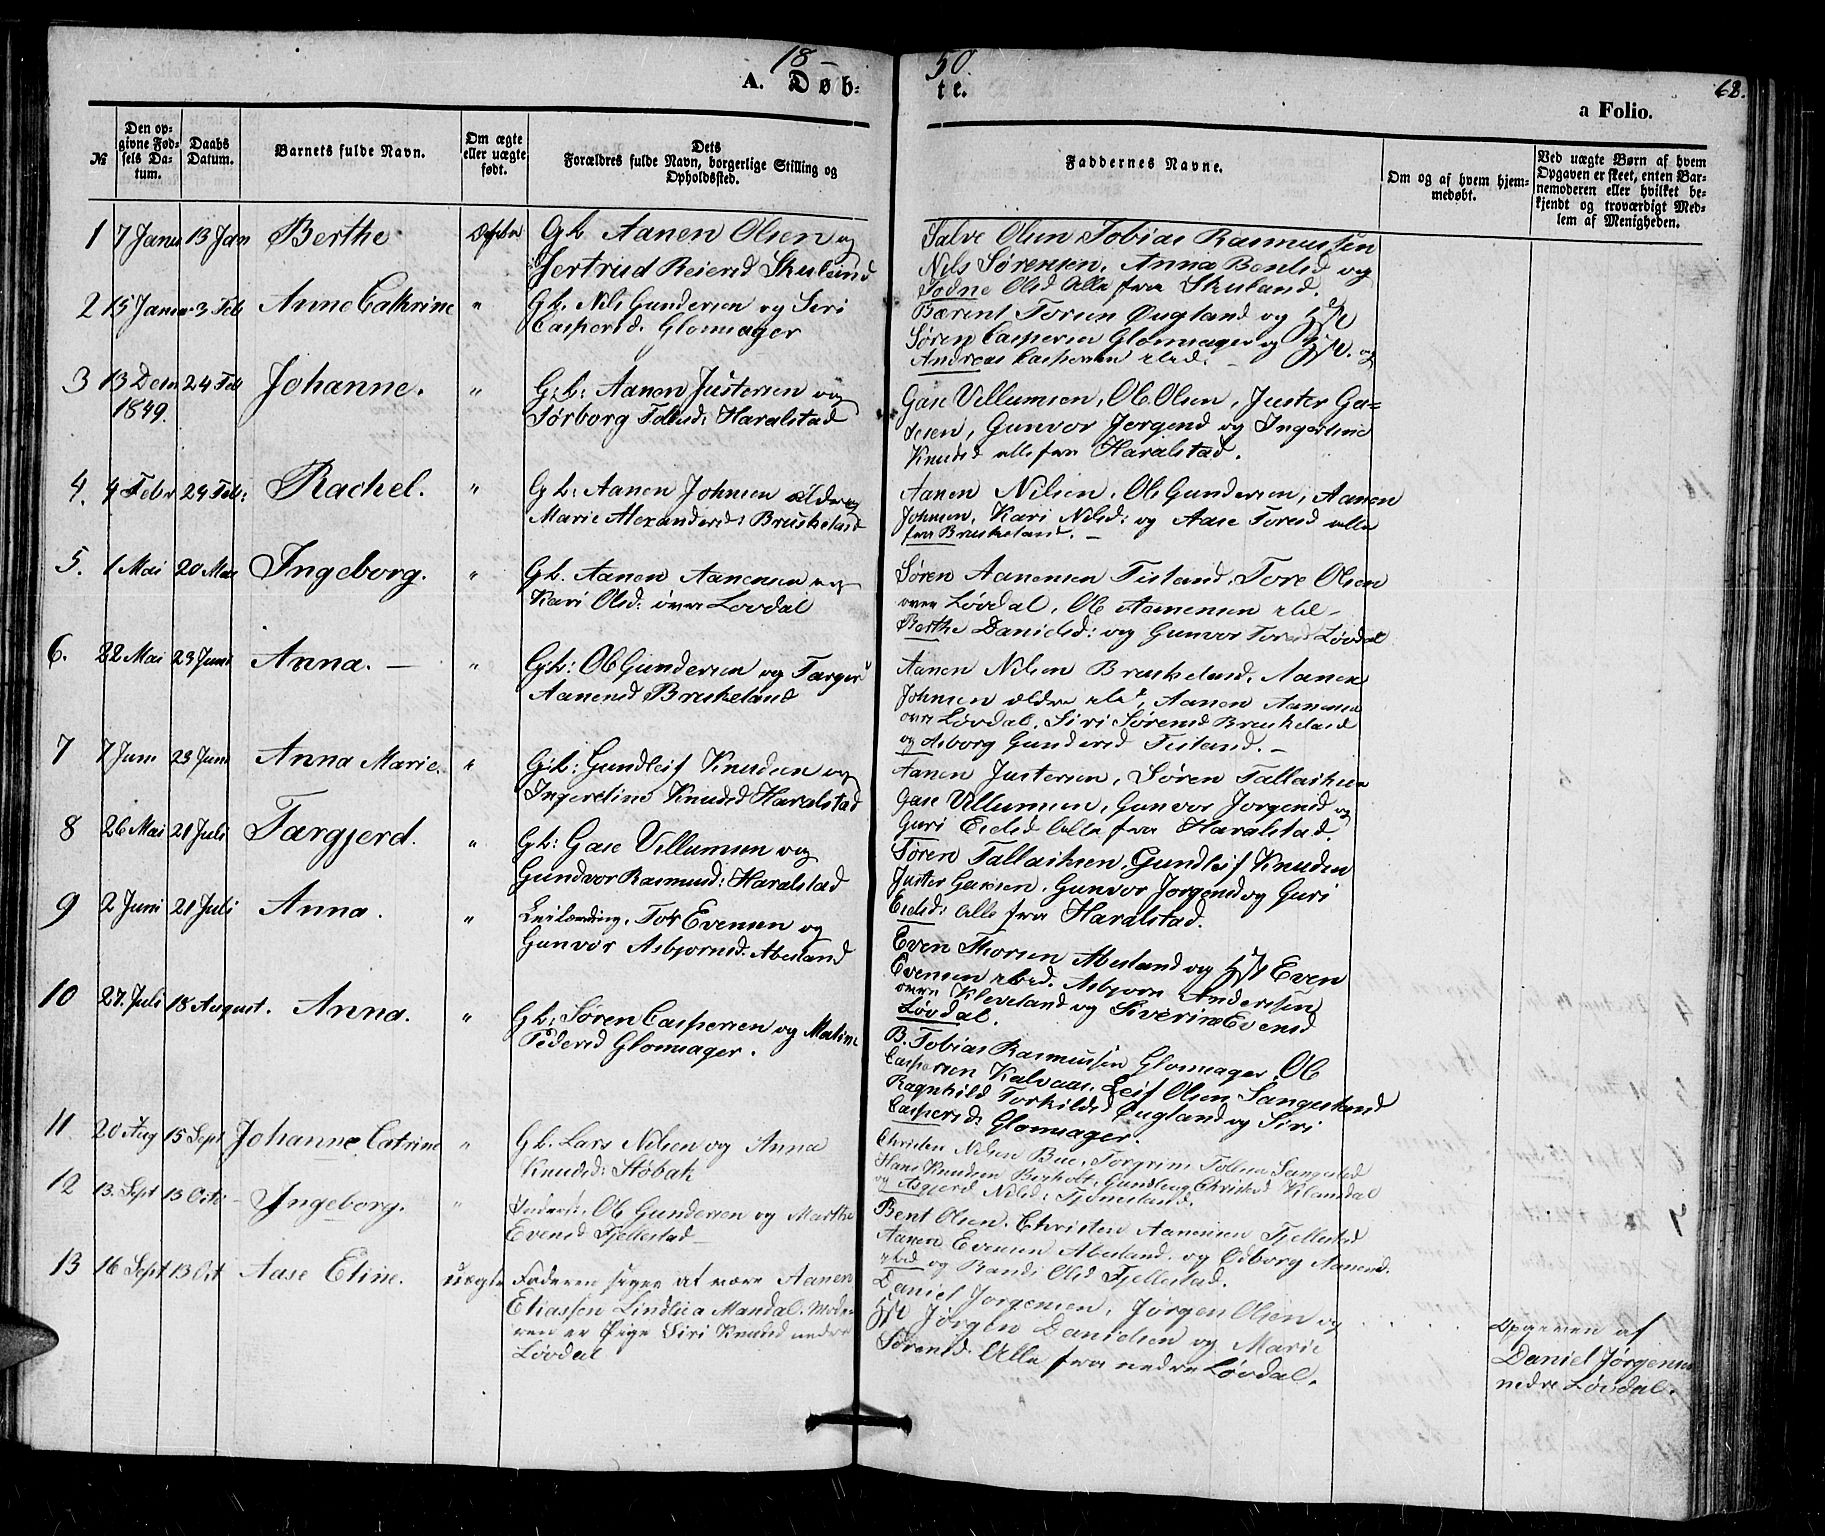 18-50.
A. Døb-te.
68.
a Folio.
№
Den op-
givne Fød-
sels Da-
tum.
Daabs
Datum.
Barnets fulde Navn.
Om ægte
eller uægte
født.
Dets
Forældres fulde Navn, borgerlige Stilling og
Opholdssted.
Faddernes Navne.
Om og af hvem hjem-
medøbt.
Ved uægte Børn af hvem
Opgaven er skeet, enten Bar-
nemoderen eller hvilket be-
kjendt og troværdigt Med-
lem af Menigheden.
1 7 Janu 13 Jan Berthe Gb. Aanen Olsen og
Gertrud Reiersd Skuland
Salve Olsen Tobias Rasmussen
Nils Sørensen, Anna Bentsd og
Olsd Alle fra Skuland.
2 15 Janua 3 Feb Anne Cathrine " Gb. Nils Gundersen og Siri
Caspersd. Glomsager
Bærent Torsen Øugland og Hst
Søren Caspersen Glomsager og Hst. og
Andreas Caspersen
3 13 Decm 24 Feb Johanne. " Gb: Aanen Justersen og
1849.
Tørborg Tallsd: Haralstad
Gase Villumsen, Ole Olsen, Juster Ga-
sesen, Gunvor Jørgensd og Ingerline
Knudsd alle fra Haralstad.
4. 4 Febr 24 Feb: Rachel. " Gb: Aanen Johnsen ældre og
Marie Alexandersd: Bruskeland
Aanen Nilsen, Ole Gundersen, Aanen
Johnsen, Kari Nilsd: og Aase Toresd alle
fra Bruskeland. -
5. 1 Mai 20 Mai Ingeborg. " Gb. Aanen Aanensen og
Kari Olsd: øvre Løvdal
Søren Aanensen Tisland, Tore Olsen
øvre Løvdal, Ole Aanensen
Berthe Danielsd: og Gunvor Toresd Løvdal
6. 22 Mai 23 Juni Anna. - " Gb: Ole Gundersen og Targer
Aanensd Bruskeland
Aanen Nilsen Bruskeland, Aanen
Johnsen ældre Aanen Aanensen
øvre Løvdal, Siri Sørensd Bruskeland
og Asborg Gundersd Tisland. -
7 7 Juni 23 Juni Anna Marie. " Gb: Gundleif Knudsen og
Ingerline Knudsd Haralstad
Aanen Justersen, Søren Tallaksen
Gase Villumsen, Gunvor Jørgensd og
Guri Eidsd Alle fra Haralstad
8 26 Mai 21 Juli Targjerd. " Gb: Gase Villumsen og
Gundvor Rasmusd: Haralstad
Søren Tallaksen, Gundleif Knudsen
Juster Gasesen, Gunvor Jørgensd og Guri
Eidsd: Alle fra Haralstad.
9 2 Juni 21 Juli Anna. " Leilænding. Tor Evensen og
Gunvor Asbjørnsd. Abesland
Even Thorsen Abesland og Hst Even
Evensen Asbjørn Anderssen
øvre Kleveland og Siverine Evensd
Løvdal.
10 27. Juli 18 August. Anna. " Gb: Søren Caspersen og Malene
Pedersd Glomsager.
B. Tobias Rasmussen Glomsager, Ole
Caspersen Kalvaas, Leif Olsen Sangesland
Ragnhild Torkildsd Øugland og Siri
Caspersd: Glomsager.
11. 20 Aug 15 Sept Johanne Catrine " Gb. Lars Nilsen og Anna
Knudsd: Støbak
Christen Nilsen Bue, Torgrim Tollsen
Hans Knudsen Birkholt, Gundleug Christensd
og Asgjerd Nilsd: Tjomsland.
12 13. Sept 13 Octb Ingeborg. " Inderst. Ole Gundersen og Marthe
Evensd Fjellestad -
Bent Olsen, Christen Aanensen Fjellestad
Aanen Evensen Abesland, og Ødborg Aanensd.
og Randi Olsd Fjellestad.
13 16 Sept 13 Oct Aase Eline. uægte Faderen siges at være Aanen
Eliassen Lindlia Mandal. Mode-
ren er Pige Siri Knudsd nedre
Løvdal
Daniel Jørgensen, Jørgen Olsen og
Hst Jørgen Danielsen og Marie
Sørensd: Alle fra nedre Løvdal.
Opgaven af
Daniel Jørgensen
nedre Løvdal.